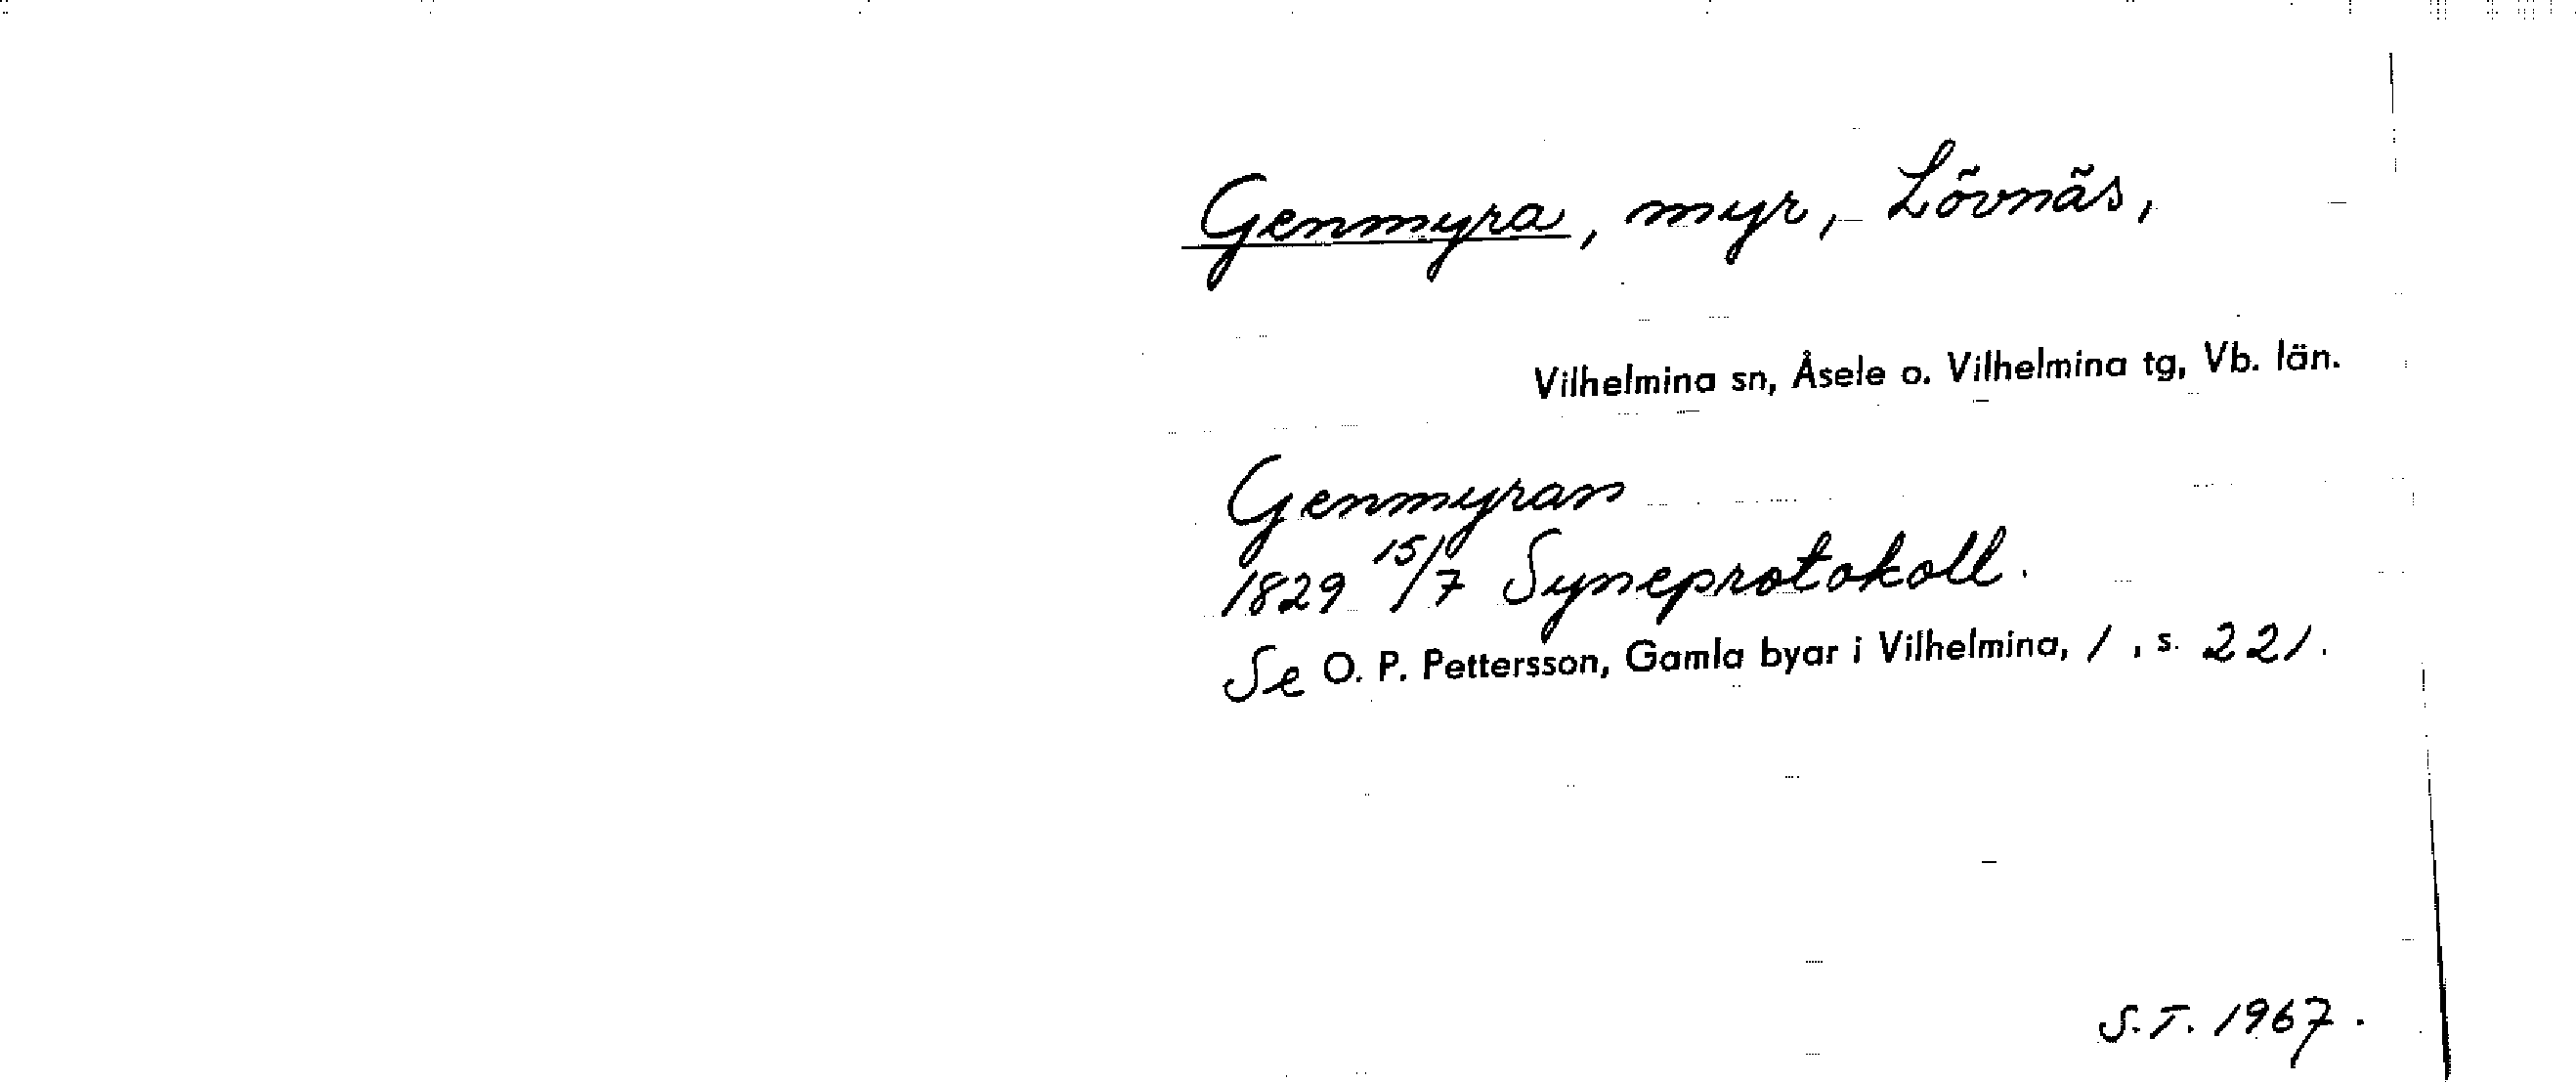 Genmyra, myr, Lövnäs,
Vilhelmina sn, Åsele o. Vilhelmina tg, Vb. län.
Genmyran
1829 15/7 Syneprotokoll.
Se O. P. Pettersson, Gamla byar i Vilhelmina, 1, s. 221.
S.T. 1967.